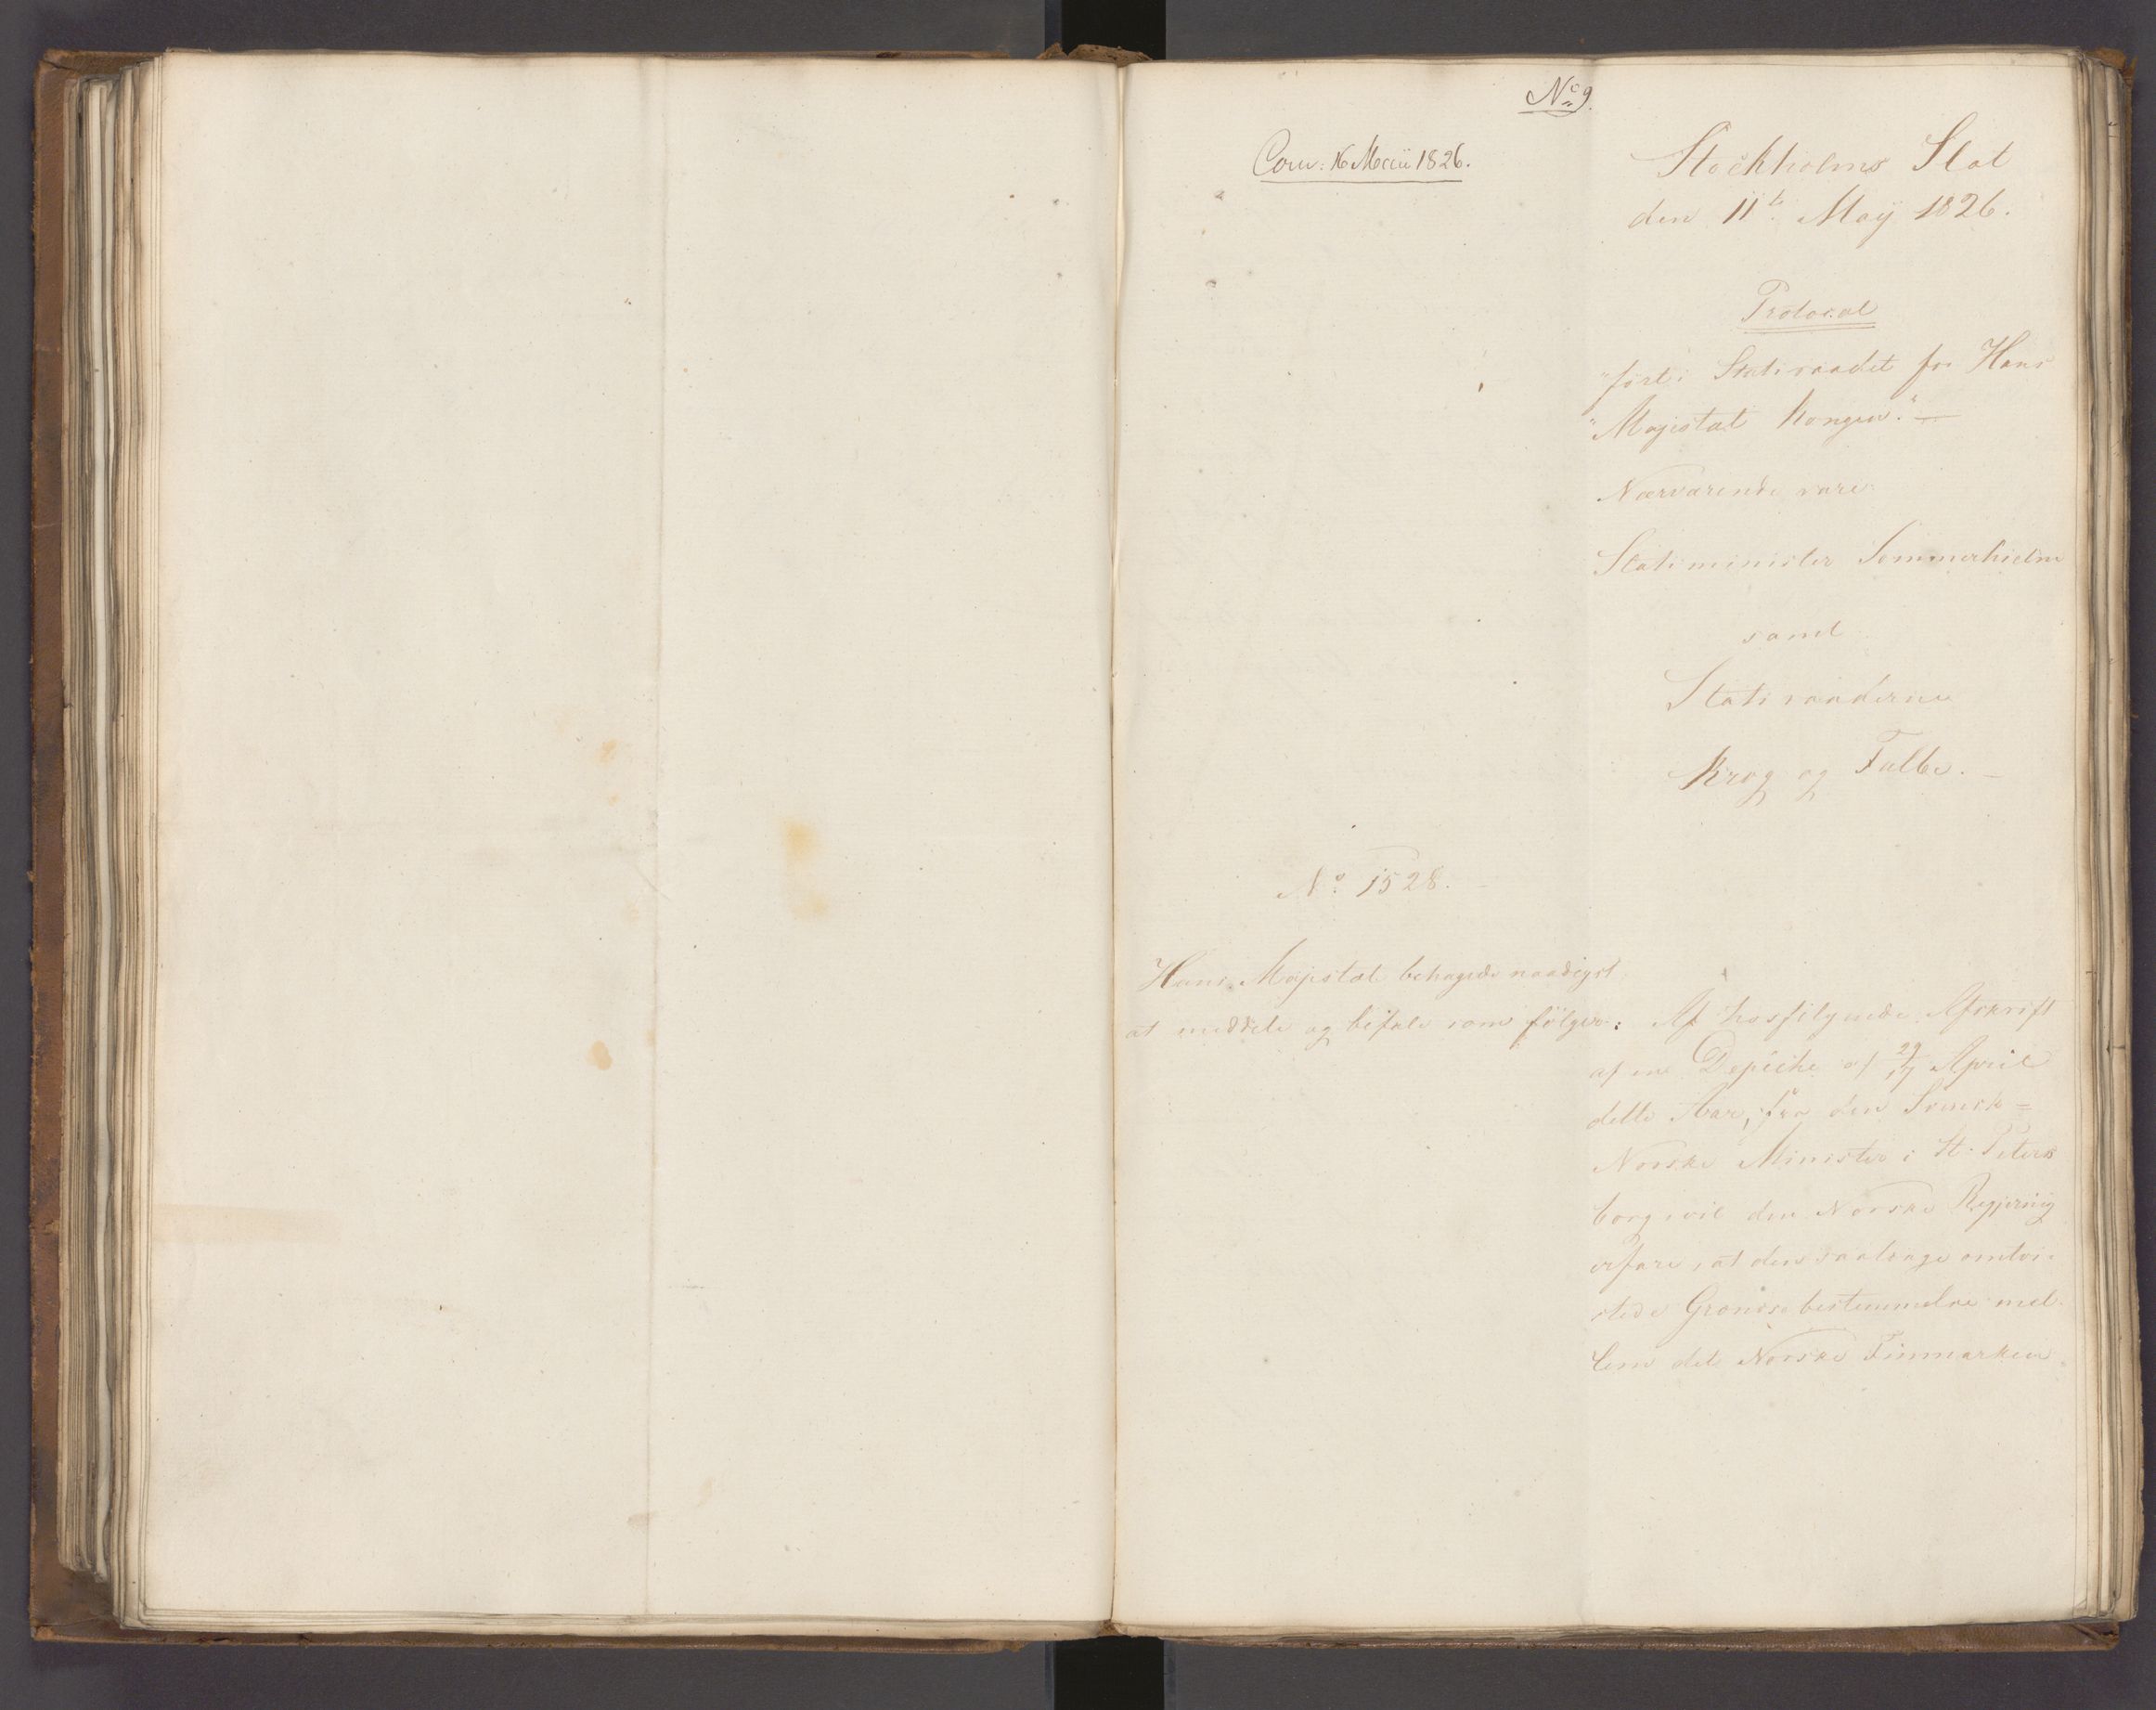 No 9.
Conv: 16 Maii 1826.
Stockholms Slot
den 11te May 1826.
Protocol
"ført i Statsraadet for Hans
"Majestæt Kongen." —
Nærværende vare
Statsminister Sommerhielm
samt
Statsraaderne
Krog og Falbe. —
No 1528.
Hans Majestæt behagede naadigst
at meddele og befale som følger:
Af hosfølgende Afskrift
af en Depéche af 29/17 April
dette Aar, fra den Svensk=
Norske Minister i St. Peters
borg, vil den Norske Regjering
erfare, at den saalænge omtvi-
stede Grændse bestemmelse mel-
lem det Norske Finmarken